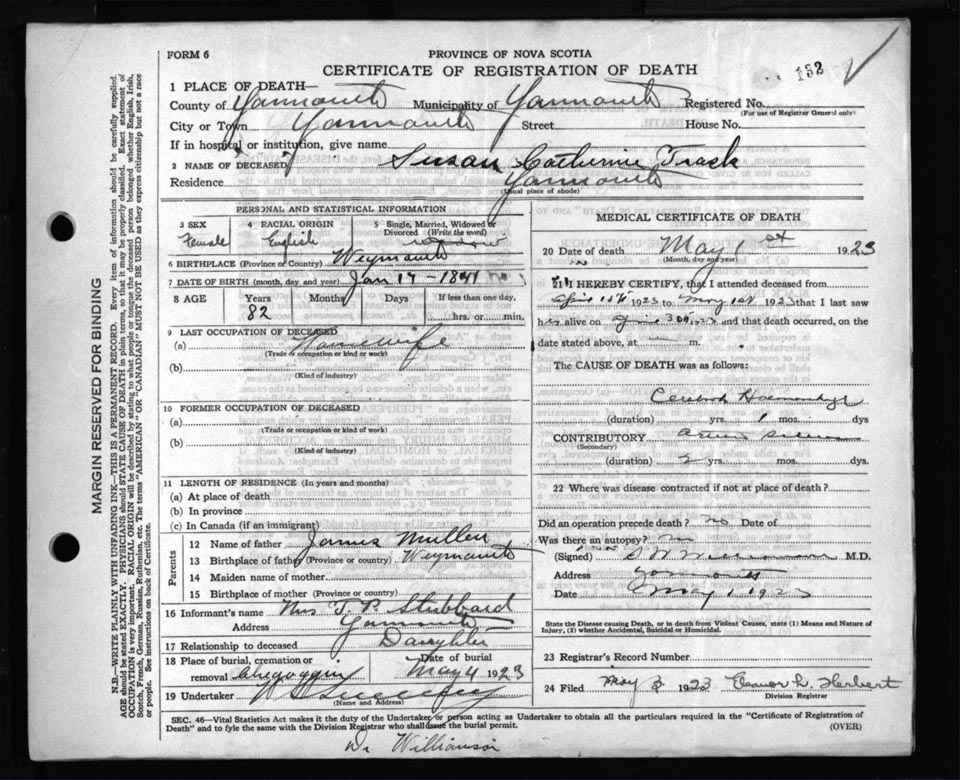 FORM 6
PROVINCE OF NOVA SCOTIA
CERTIFICATE OF REGISTRATION OF DEATH
132
1 PLACE OF DEATH—
County of Yarmouth Municipality of Yarmouth Registered No.
(For use of Registrar General only)
City or Town Yarmouth Street House No.
If in hospital or institution, give name
2 NAME OF DECEASED Susan Catherine Trask
Residence Yarmouth
(Usual place of abode)
PERSONAL AND STATISTICAL INFORMATION
3 SEX 4 RACIAL ORIGIN 5 Single, Married, Widowed or Divorced (Write the word)
Female English widow
6 BIRTHPLACE (Province or Country) Weymouth
7 DATE OF BIRTH (month, day, and year) Jan 17 - 1841
8 AGE Years Months Days If less than one day,
82 hrs. or min.
9 LAST OCCUPATION OF DECEASED
(a) Housewife
(Trade or occupation or kind or work)
(b)
(Kind of industry)
10 FORMER OCCUPATION OF DECEASED
(a)
(Trade or occupation or kind of work)
(b)
(Kind of industry)
11 LENGTH OF RESIDENCE (In years and months)
(a) At place of death
(b) In province
(c) In Canada (if an immigrant)
Parents
12 Name of father James Mullen
13 Birthplace of father (Province or country) Weymouth
14 Maiden name of mother
15 Birthplace of mother (Province or country)
16 Informant's name Mrs T. P. Stubbard
Address Yarmouth
17 Relationship to deceased Daughter
18 Place of burial, cremation or removal Chegoggin Date of burial May 4 1923
19 Undertaker
(Name and Address)
MEDICAL CERTIFICATE OF DEATH
20 Date of death May 1st 1923
(Month, day and year)
21 I HEREBY CERTIFY, that I attended deceased from
April 1923 to May 1st 1923 that I last saw
her alive on 30 1923 and that death occurred, on the
date stated above, at m.
The CAUSE OF DEATH was as follows:
Cerebral Haemorrhage
(duration) yrs. 1 mos. dys.
CONTRIBUTORY
(Secondary)
(duration) 2 yrs. mos. dys.
22 Where was disease contracted if not at place of death?
Did an operation precede death? no Date of
Was there an autopsy? no
(Signed) M.D.
Address Yarmouth
Date May 1 1923
State the Disease causing Death, or in death from Violent Causes, state (1) Means and Nature of Injury, (2) whether Accidental, Suicidal or Homicidal.
23 Registrar's Record Number
24 Filed May 3 1923 Eleanor L. Herbert
Division Registrar
SEC. 46—Vital Statistics Act makes it the duty of the Undertaker or person acting as Undertaker to obtain all the particulars required in the "Certificate of Registration of
Death" and to fyle the same with the Division Registrar who shall issue the burial permit. (OVER)
Dr Williamson
MARGIN RESERVED FOR BINDING
N.B.—WRITE PLAINLY WITH UNFADING INK—THIS IS A PERMANENT RECORD. Every item of information should be carefully supplied.
AGE should be stated EXACTLY. PHYSICIANS should STATE CAUSE OF DEATH in plain terms, so that it may be properly classified. Exact statement of
OCCUPATION is very important. RACIAL ORIGIN will be described by stating to what people or tongue the deceased person belonged whether English, Irish,
Scotch, French, German, Russian, Ruthenian, etc. The terms "AMERICAN" OR "CANADIAN" MUST NOT BE USED as they express citizenship but not a race
or people. See instructions on back of Certificate.